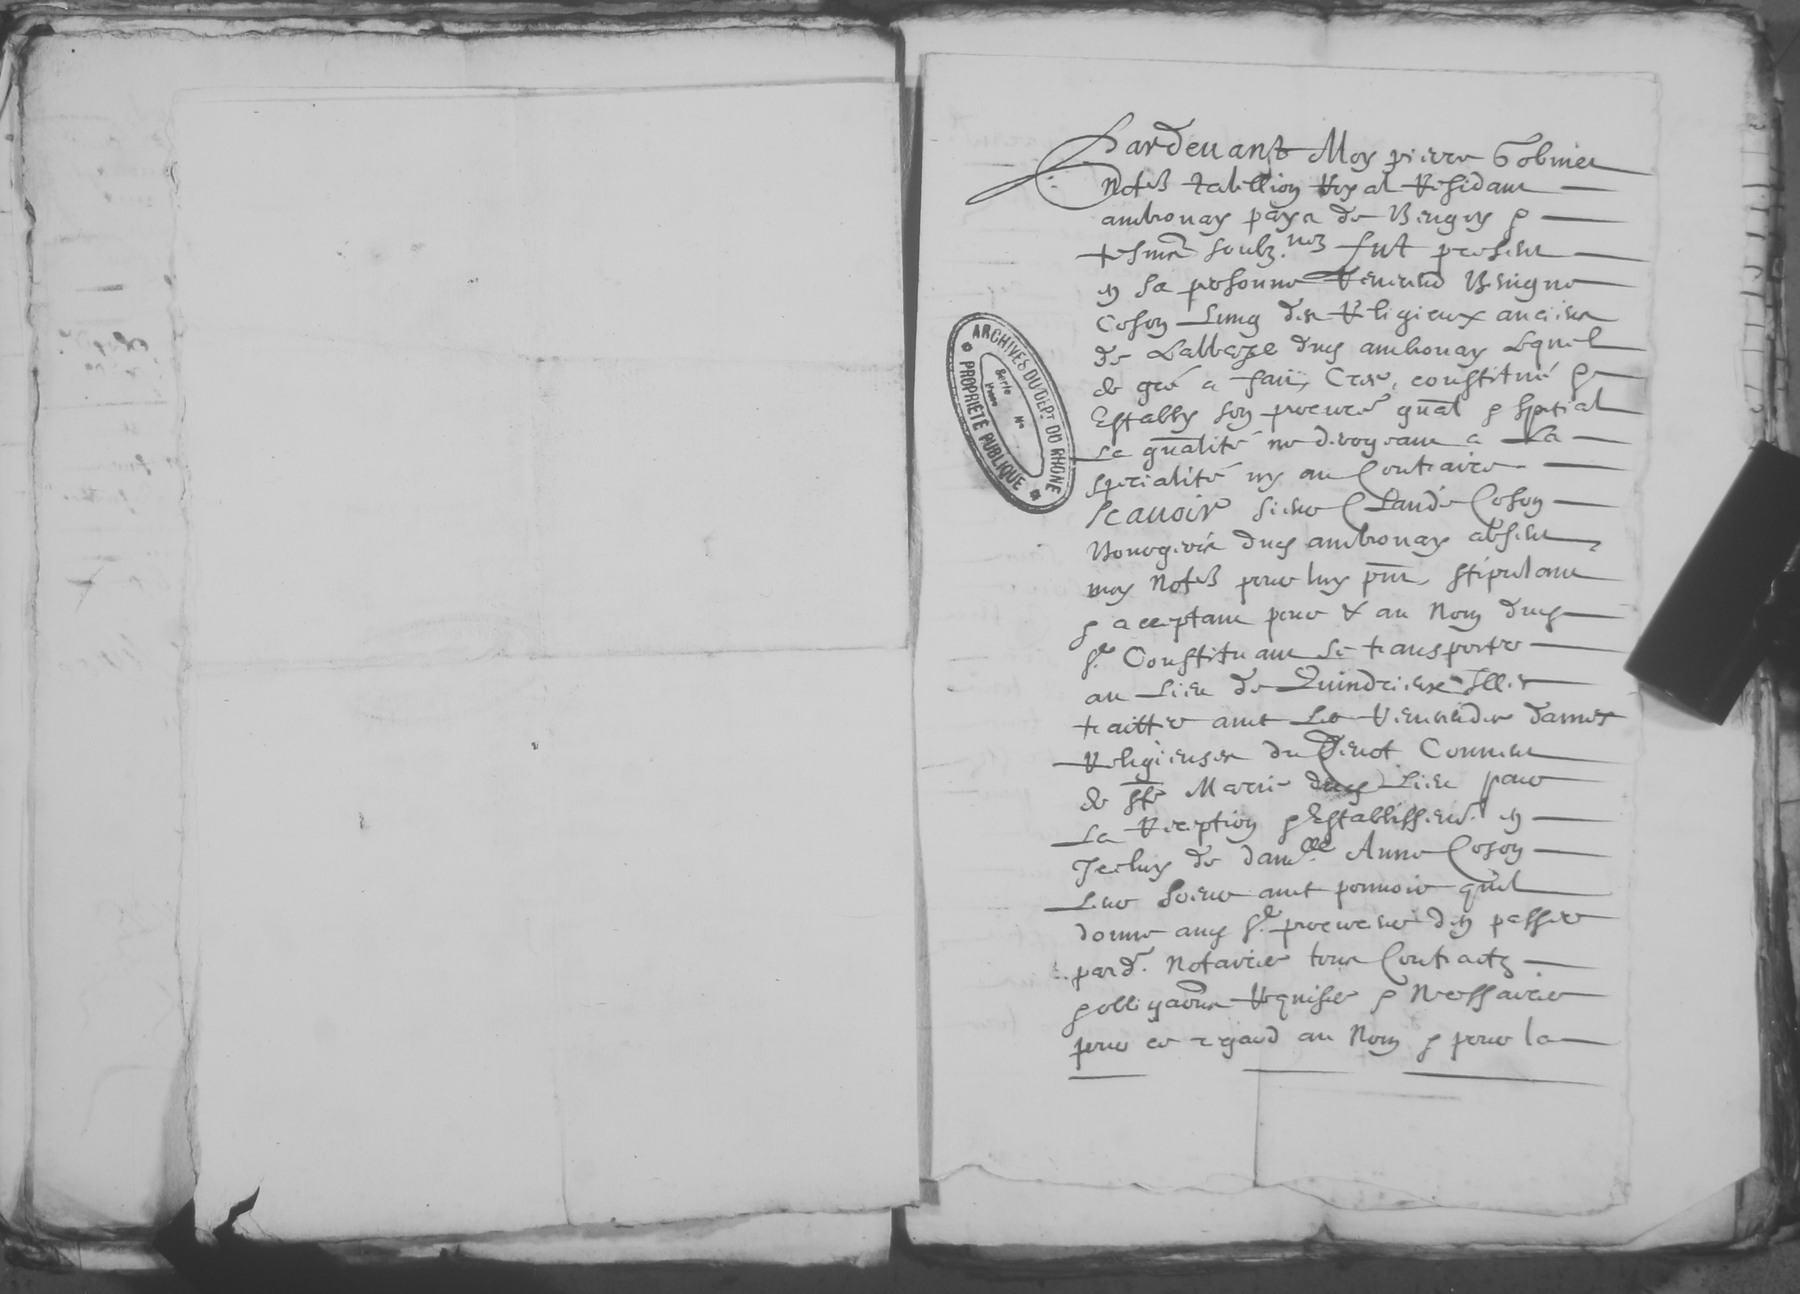 Pardevant Moy pierre
Not.re tabellion Royal Residant
ambronay pays de Beugey &
tesmoins soubz. nez fut present
en sa personne Venerend Benigne
Coson Lung des Religieux anciens
de Labbaye dudt ambronay Lequel
de gré a faict, Cree, constitué &
Estably son procureur gnal & spetial
La gnalité ne derogeant a La
specialité ny au Contraire
Scavoir sieur Claude Coson
Bourgeois dudt ambronay absent
moy Not.re pour luy pnt, stipulant
& acceptant pour & au Nom dudt
sr Constituant se transporter
au Lieu de
traitter avec Les Venerendes dames
Religieuses du Devot Couvent
de ste Marie dudt Lieu pour
La Reception & Establissemt en
Jceluy de dam.lle Anne Coson
Leur soeur avec pouvoir quil
donne audt sr procureur den passer
pard. Notaire tous Contractz
& obligaons Requises & Necessaires
pour ce regard au Nom & pour la
ARCHIVES DU DÉPT DU RHONE
PROPRIÉTÉ PUBLIQUE